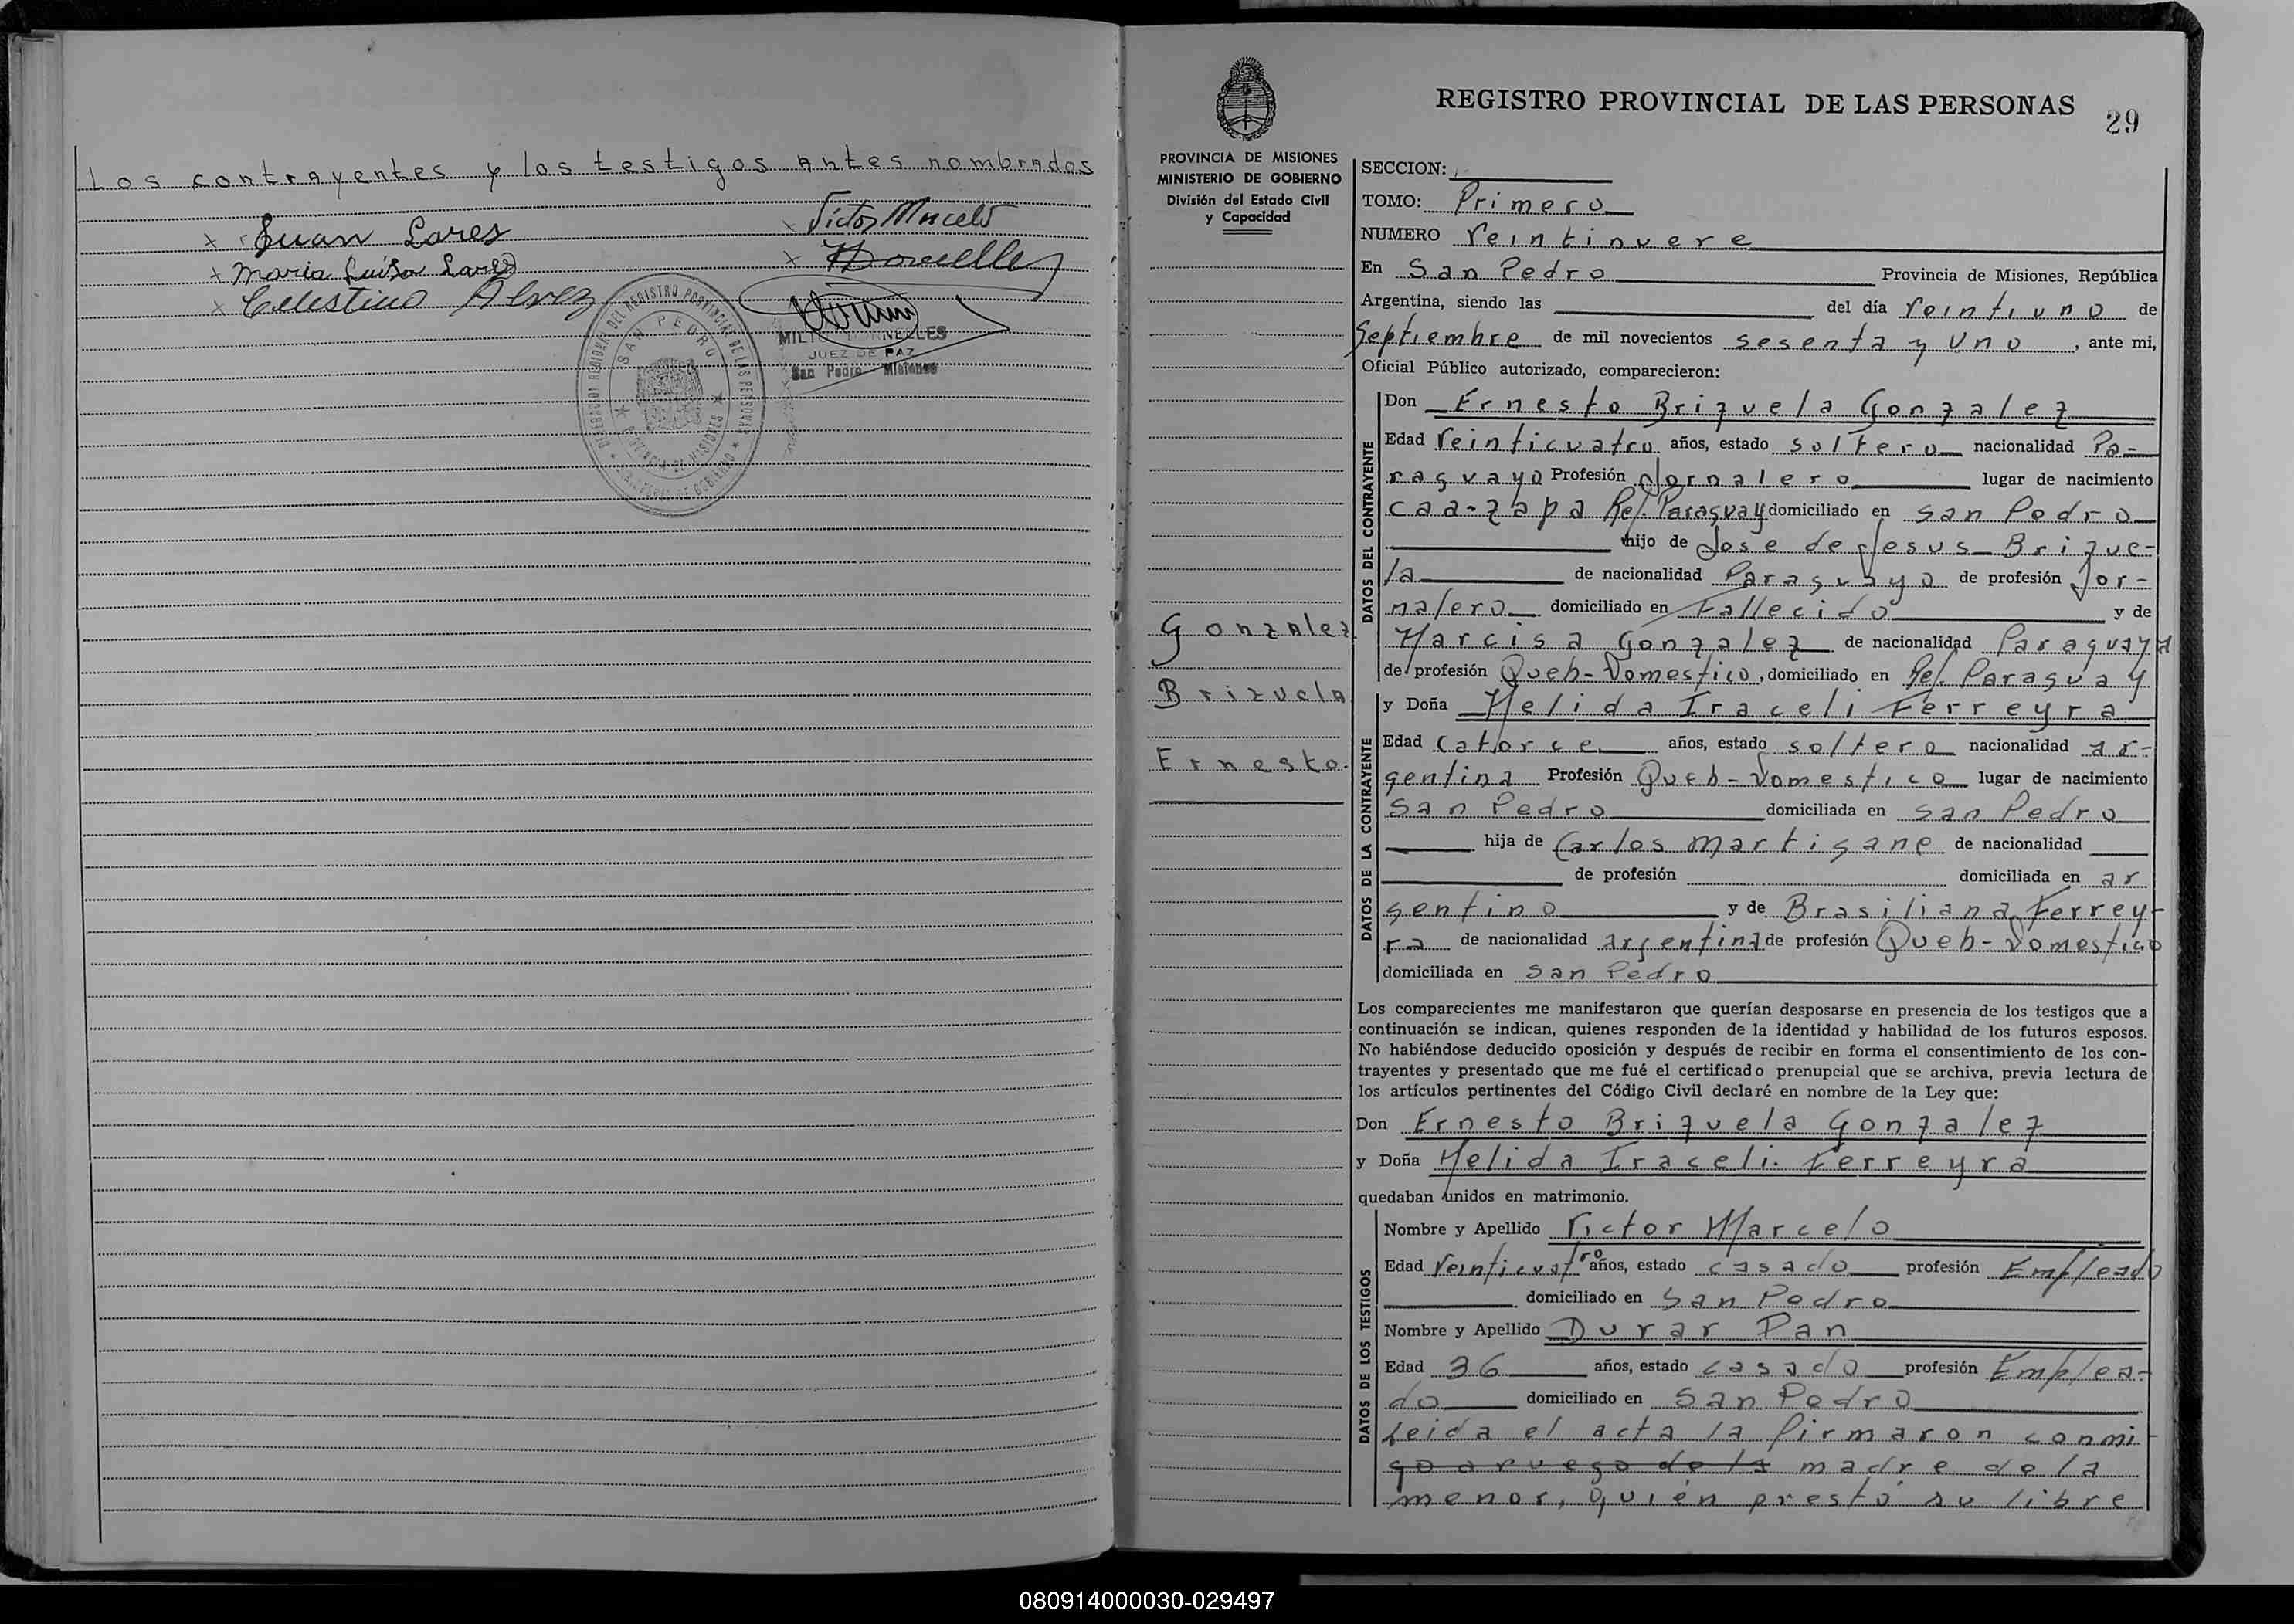 Los contrayentes y los testigos antes nombrados
x Juan Lares
x Victor Marcelo
x Maria Luisa Lares
x Celestino Alvez
DELEGACION REGIONAL DEL REGISTRO PROVINCIAL DE LAS PERSONAS
SAN PEDRO
PROVINCIA DE MISIONES
MINISTERIO DE GOBIERNO
JUEZ DE PAZ
San Pedro Misiones
PROVINCIA DE MISIONES
MINISTERIO DE GOBIERNO
División del Estado Civil
y Capacidad
Gonzalez
Brizuela
Ernesto.
REGISTRO PROVINCIAL DE LAS PERSONAS
29
SECCION:
TOMO: Primero
NUMERO Veintinueve
En San Pedro Provincia de Misiones, República
Argentina, siendo las del día Veintiuno de
Septiembre de mil novecientos sesenta y Uno, ante mi,
Oficial Público autorizado, comparecieron:
DATOS DEL CONTRAYENTE
Don Ernesto Brizuela Gonzalez
Edad Veinticuatro años, estado soltero nacionalidad Pa-
raguayo Profesión Jornalero lugar de nacimiento
caa-zapa Rep. Paraguay domiciliado en San Pedro
hijo de Jose de Jesus Brizue-
la de nacionalidad Paraguayo de profesión Jor-
nalero domiciliado en Fallecido y de
Narcisa Gonzalez de nacionalidad Paraguaya
de profesión Queh-Domestico, domiciliado en Rep. Paraguay
DATOS DE LA CONTRAYENTE
y Doña Nelida Iraceli Ferreyra
Edad Catorce años, estado soltera nacionalidad ar-
gentina Profesión Queh-Domestico lugar de nacimiento
San Pedro domiciliada en San Pedro
hija de Carlos Martigane de nacionalidad
de profesión domiciliada en ar
gentino y de Brasiliana Ferrey-
ra de nacionalidad argentina de profesión Queh-Domestico
domiciliada en San Pedro
Los comparecientes me manifestaron que querían desposarse en presencia de los testigos que a
continuación se indican, quienes responden de la identidad y habilidad de los futuros esposos.
No habiéndose deducido oposición y después de recibir en forma el consentimiento de los con-
trayentes y presentado que me fué el certificado prenupcial que se archiva, previa lectura de
los artículos pertinentes del Código Civil declaré en nombre de la Ley que:
Don Ernesto Brizuela Gonzalez
y Doña Nelida Iraceli. Ferreyra
quedaban unidos en matrimonio.
DATOS DE LOS TESTIGOS
Nombre y Apellido Victor Marcelo
Edad Veinticuatro años, estado casado profesión Empleado
domiciliado en San Pedro
Nombre y Apellido Durar Pan
Edad 36 años, estado casado profesión Emplea-
do domiciliado en San Pedro
Leida el acta la firmaron conmi-
go a ruego de la madre de la
menor, quien prestó su libre
080914000030-029497